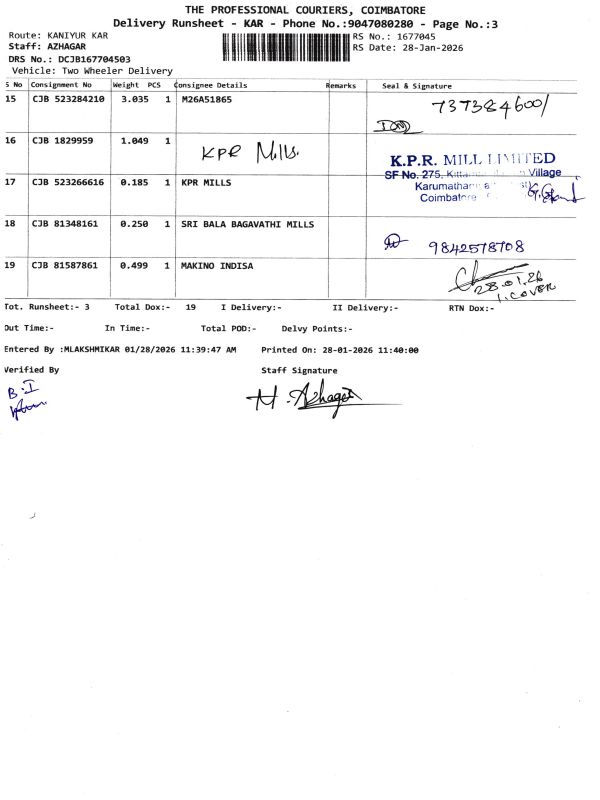 THE PROFESSIONAL COURIERS, COIMBATORE
Delivery Runsheet - KAR - Phone No.:9047080280 - Page No.:3
Route: KANIYUR KAR
RS No.: 1677045
Staff: AZHAGAR
RS Date: 28-Jan-2026
DRS No.: DCJB167704503
Vehicle: Two Wheeler Delivery
S No Consignment No Weight PCS Consignee Details Remarks Seal & Signature
15 CJB 523284210 3.035 1 M26A51865 737384600/
16 CJB 1829959 1.049 1 KPR Mills.
K.P.R. MILL LIMITED
SF No. 275, Village
17 CJB 523266616 0.185 1 KPR MILLS
Coimbatore
18 CJB 81348161 0.250 1 SRI BALA BAGAVATHI MILLS
9842578708
19 CJB 81587861 0.499 1 MAKINO INDISA
28.01.26
1. COVER
Tot. Runsheet:- 3 Total Dox:- 19 I Delivery:- II Delivery:- RTN Dox:-
Out Time:- In Time:- Total POD:- Delvy Points:-
Entered By :MLAKSHMIKAR 01/28/2026 11:39:47 AM Printed On: 28-01-2026 11:40:00
Verified By Staff Signature
B.I
M. Azhagar